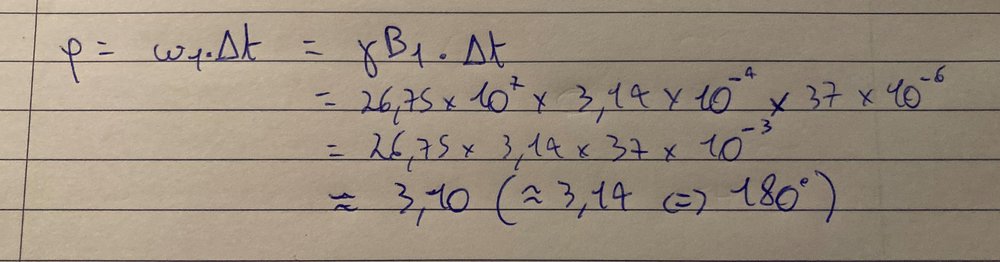 φ = ω₁.Δt = γB₁ . Δt
= 26,75 × 10⁷ × 3,14 × 10⁻⁴ × 37 × 10⁻⁶
= 26,75 × 3,14 × 37 × 10⁻³
≈ 3,10 (≈ 3,14 <=> 180°)